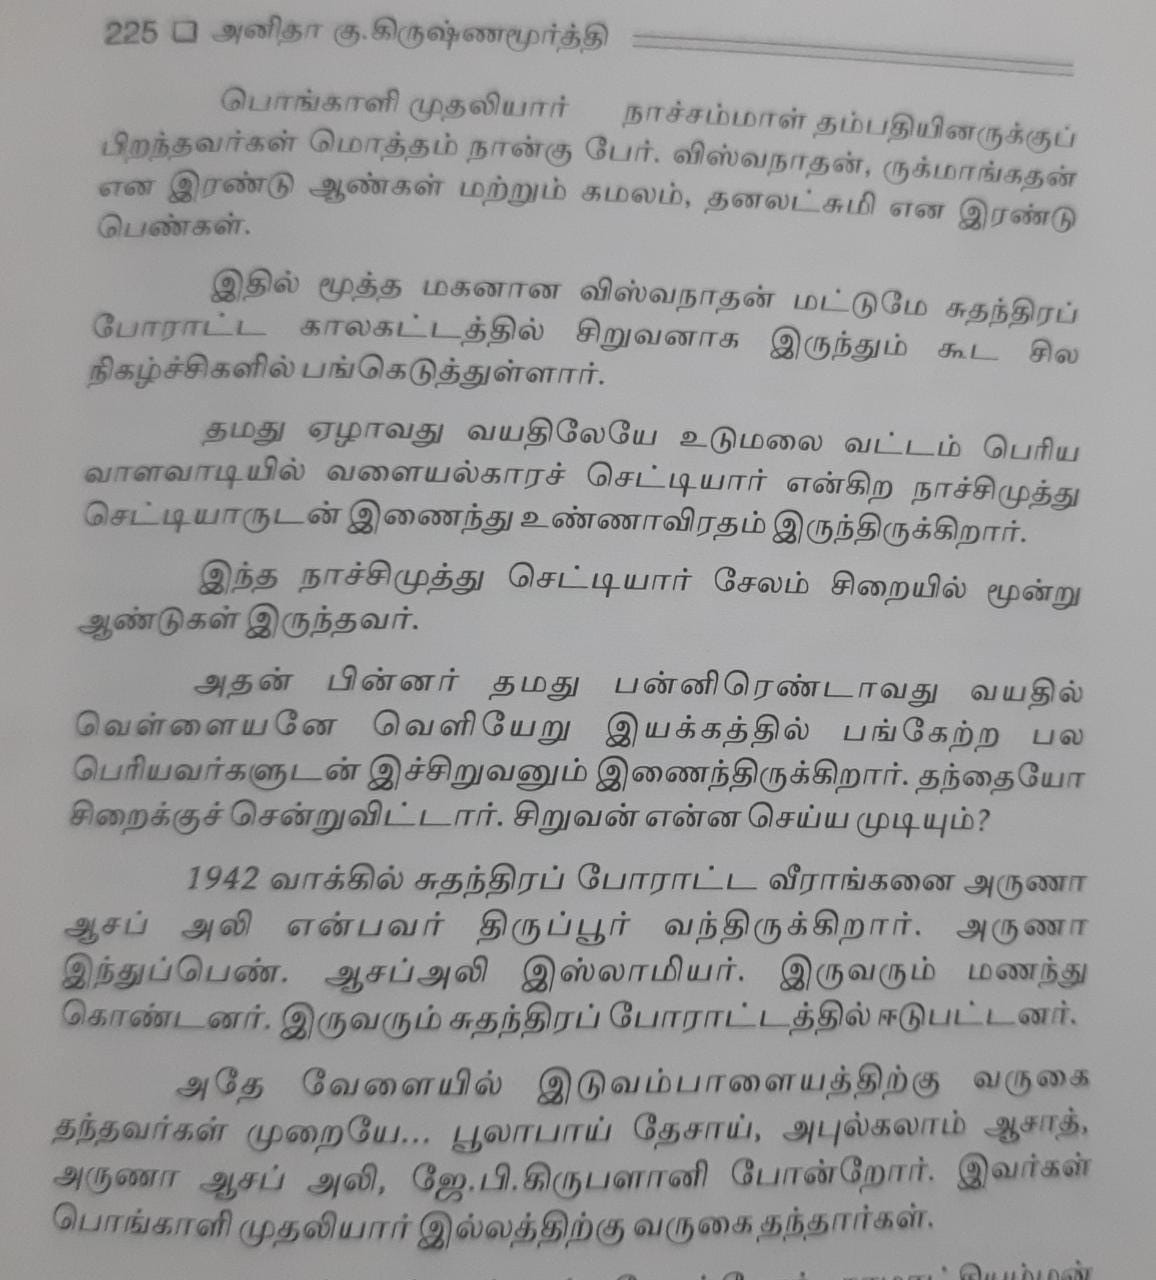 225 □ அனிதா கு.கிருஷ்ணமூர்த்தி
பொங்காளி முதலியார் நாச்சம்மாள் தம்பதியினருக்குப்
பிறந்தவர்கள் மொத்தம் நான்கு பேர். விஸ்வநாதன், ருக்மாங்கதன்
என இரண்டு ஆண்கள் மற்றும் கமலம், தனலட்சுமி என இரண்டு
பெண்கள்.
இதில் மூத்த மகனான விஸ்வநாதன் மட்டுமே சுதந்திரப்
போராட்ட காலகட்டத்தில் சிறுவனாக இருந்தும் கூட சில
நிகழ்ச்சிகளில் பங்கெடுத்துள்ளார்.
தமது ஏழாவது வயதிலேயே உடுமலை வட்டம் பெரிய
வாளவாடியில் வளையல்காரச் செட்டியார் என்கிற நாச்சிமுத்து
செட்டியாருடன் இணைந்து உண்ணாவிரதம் இருந்திருக்கிறார்.
இந்த நாச்சிமுத்து செட்டியார் சேலம் சிறையில் மூன்று
ஆண்டுகள் இருந்தவர்.
அதன் பின்னர் தமது பன்னிரெண்டாவது வயதில்
வெள்ளையனே வெளியேறு இயக்கத்தில் பங்கேற்ற பல
பெரியவர்களுடன் இச்சிறுவனும் இணைந்திருக்கிறார். தந்தையோ
சிறைக்குச் சென்றுவிட்டார். சிறுவன் என்ன செய்ய முடியும்?
1942 வாக்கில் சுதந்திரப் போராட்ட வீராங்கனை அருணா
ஆசப் அலி என்பவர் திருப்பூர் வந்திருக்கிறார். அருணா
இந்துப்பெண். ஆசப்அலி இஸ்லாமியர். இருவரும் மணந்து
கொண்டனர். இருவரும் சுதந்திரப் போராட்டத்தில் ஈடுபட்டனர்.
அதே வேளையில் இடுவம்பாளையத்திற்கு வருகை
தந்தவர்கள் முறையே... பூலாபாய் தேசாய், அபுல்கலாம் ஆசாத்,
அருணா ஆசப் அலி, ஜே.பி.கிருபளானி போன்றோர். இவர்கள்
பொங்காளி முதலியார் இல்லத்திற்கு வருகை தந்தார்கள்.